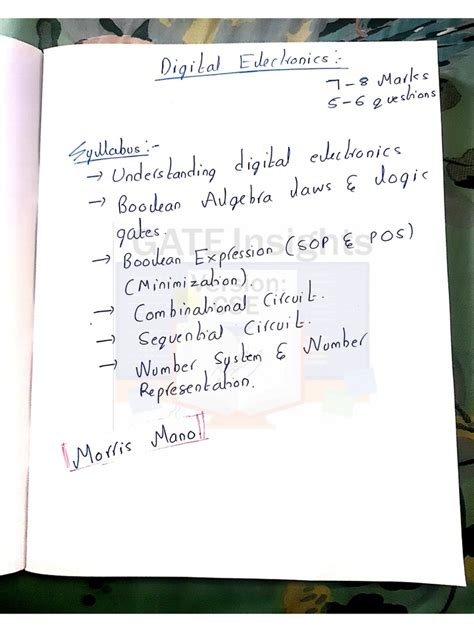 Digital Electronics :-
7-8 Marks
5-6 questions
Syllabus :-
→ Understanding digital electronics
→ Boolean Algebra laws & logic
gates.
→ Boolean Expression (SOP & POS)
(Minimization).
→ Combinational Circuit.
→ Sequential Circuit.
→ Number System & Number
Representation.
Morris Mano
GATE Insights
Version:
CSE